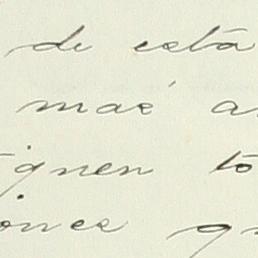 de está
mas a
ignen to
iones q